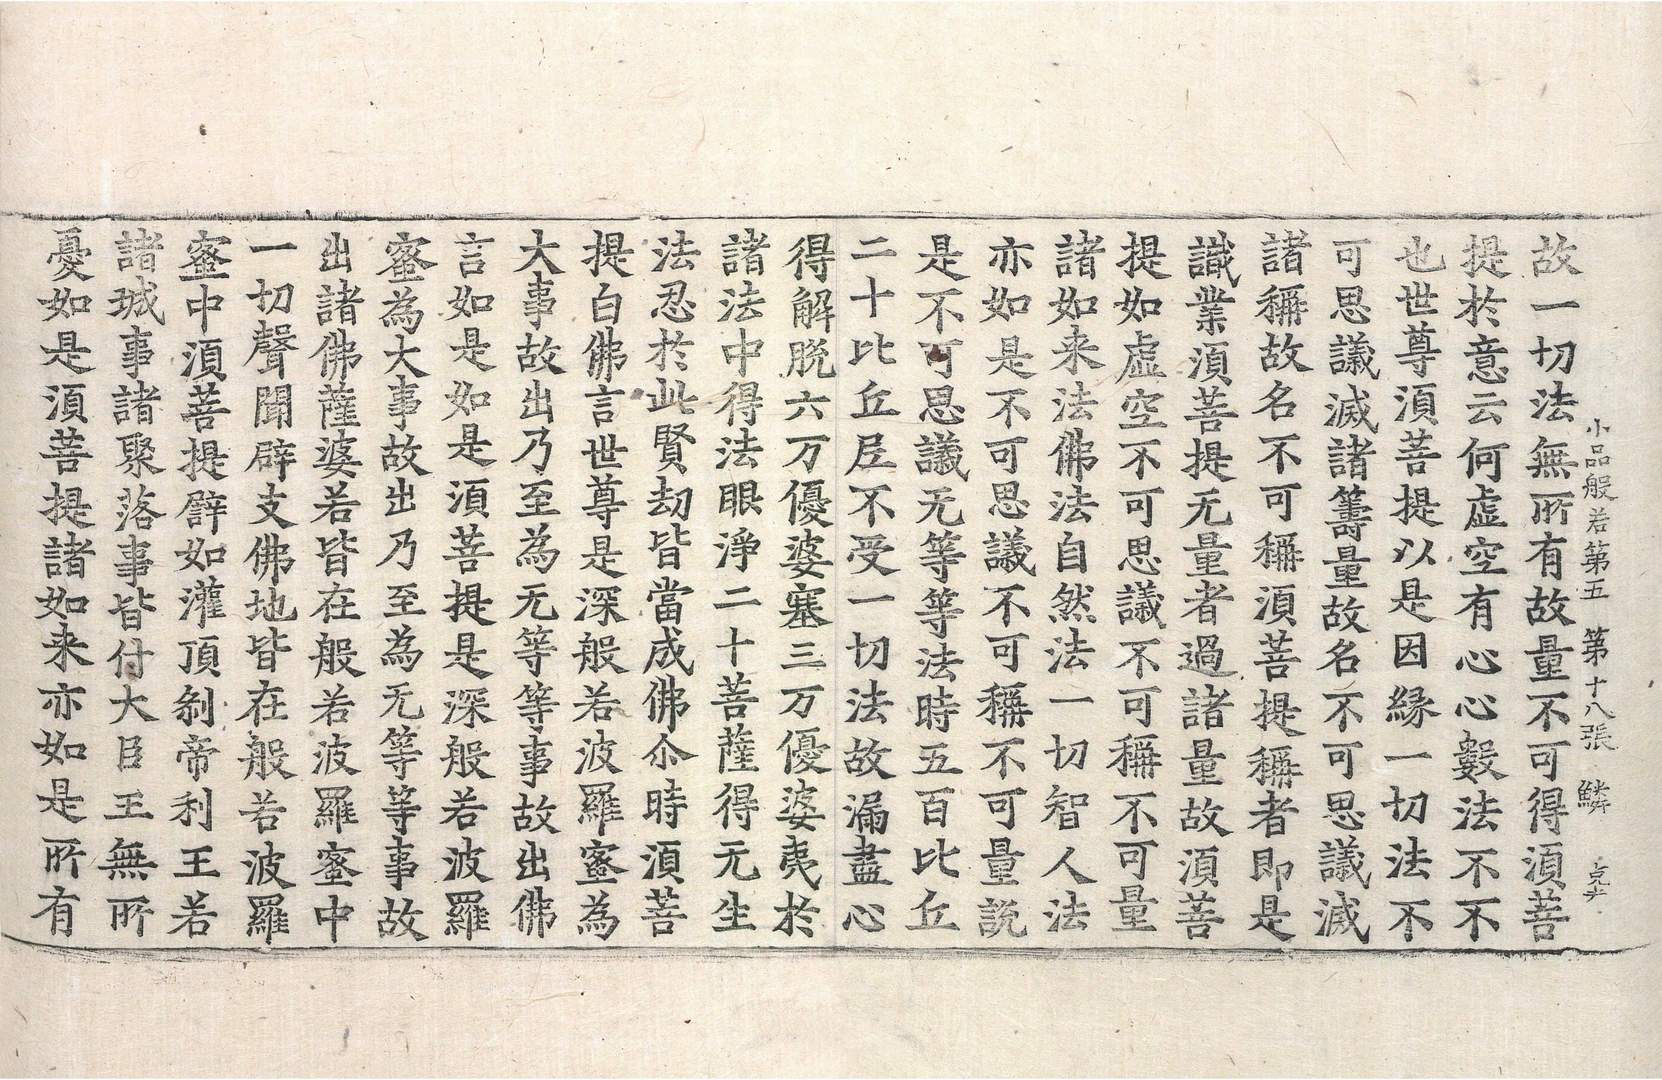 小品般若第五　第十八張　鱗
故一切法無所有故量不可得湏菩
提於意云何虛空有心心數法不不
也世尊湏菩提以是因緣一切法不
可思議滅諸籌量故名不可思議滅
諸稱故名不可稱湏菩提稱者即是
識業湏菩提无量者過諸量故湏菩
提如虛空不可思議不可稱不可量
諸如来法佛法自然法一切智人法
亦如是不可思議不可稱不可量說
是不可思議无等等法時五百比丘
二十比丘尼不受一切法故漏盡心
得解脫六万優婆塞三万優婆夷於
諸法中得法眼淨二十菩薩得无生
法忍於此賢劫皆當成佛尒時湏菩
提白佛言世尊是深般若波羅蜜為
大事故出乃至為无等等事故出佛
言如是如是湏菩提是深般若波羅
蜜為大事故出乃至為无等等事故
出諸佛薩婆若皆在般若波羅蜜中
一切聲聞辟支佛地皆在般若波羅
蜜中湏菩提譬如灌頂刹帝利王若
諸城事諸聚落事皆付大臣王無所
憂如是湏菩提諸如来亦如是所有